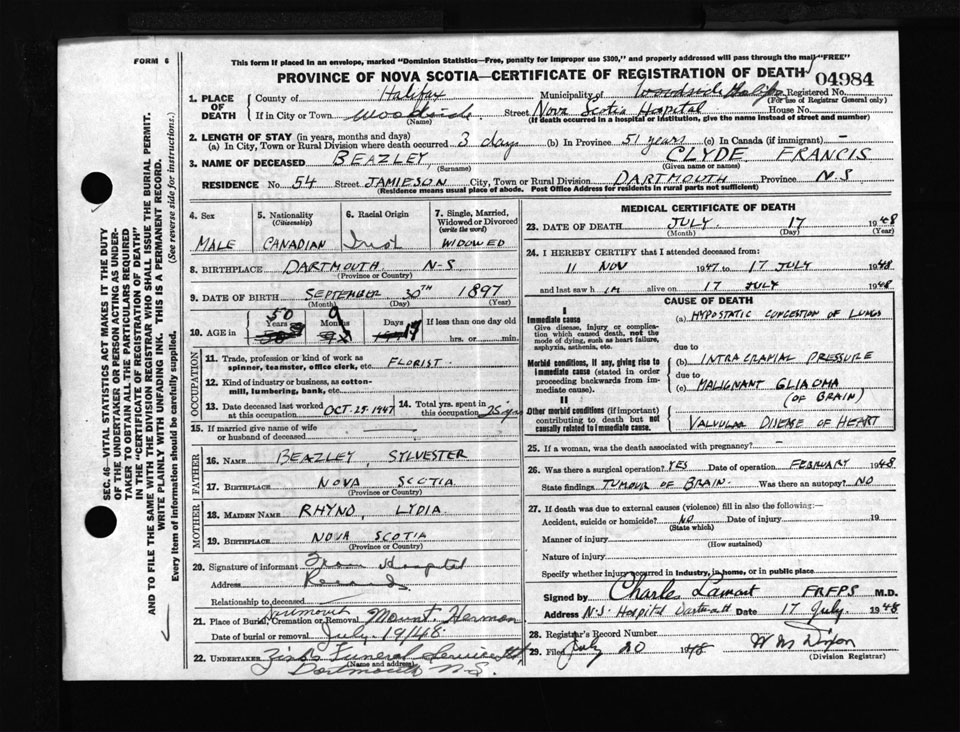 FORM 6
This form if placed in an envelope, marked "Dominion Statistics—Free, penalty for improper use $300," and properly addressed will pass through the mail "FREE"
PROVINCE OF NOVA SCOTIA—CERTIFICATE OF REGISTRATION OF DEATH
04984
1. PLACE OF DEATH
County of Halifax Municipality of Woodside Halifax Registered No.
(For use of Registrar General only)
If in City or Town Woodside Street Nova Scotia Hospital House No.
(Name) (If death occurred in a hospital or institution, give the name instead of street and number)
2. LENGTH OF STAY (in years, months and days)
(a) In City, Town or Rural Division where death occurred 3 days (b) In Province 51 years (c) In Canada (if immigrant) —
3. NAME OF DECEASED BEAZLEY CLYDE FRANCIS
(Surname) (Given name or names)
RESIDENCE No. 54 Street JAMIESON City, Town or Rural Division DARTMOUTH Province N-S
(Residence means usual place of abode. Post Office Address for residents in rural parts not sufficient)
4. Sex 5. Nationality (Citizenship) 6. Racial Origin 7. Single, Married, Widowed or Divorced (write the word)
MALE CANADIAN Irish WIDOWED
8. BIRTHPLACE DARTMOUTH N-S
(Province or Country)
9. DATE OF BIRTH SEPTEMBER 30TH 1897
(Month) (Day) (Year)
10. AGE in 50 Years 9 Months 17 Days If less than one day old
hrs. or min.
OCCUPATION
11. Trade, profession or kind of work as spinner, teamster, office clerk, etc. FLORIST
12. Kind of industry or business, as cotton-mill, lumbering, bank, etc.
13. Date deceased last worked at this occupation OCT-25-1947 14. Total yrs. spent in this occupation 25 yrs
15. If married give name of wife or husband of deceased
FATHER
16. NAME BEAZLEY, SYLVESTER
17. BIRTHPLACE NOVA SCOTIA
(Province or Country)
MOTHER
18. MAIDEN NAME RHYNO, LYDIA
19. BIRTHPLACE NOVA SCOTIA
(Province or Country)
20. Signature of informant From Hospital
Address Records
Relationship to deceased
21. Place of Burial, Cremation or Removal Dartmouth Mount Hermon
Date of burial or removal July 19/48.
22. UNDERTAKER Zink's Funeral Service Ltd
(Name and address)
Dartmouth N.S.
MEDICAL CERTIFICATE OF DEATH
23. DATE OF DEATH JULY 17 1948
(Month) (Day) (Year)
24. I HEREBY CERTIFY that I attended deceased from:
11 NOV 1947 to 17 JULY 1948
and last saw him alive on 17 JULY 1948
CAUSE OF DEATH
I
Immediate cause
Give disease, injury or complication which caused death, not the mode of dying, such as heart failure, asphyxia, asthenia, etc.
(a) HYPOSTATIC CONGESTION OF LUNGS
due to
Morbid conditions, if any, giving rise to immediate cause (stated in order proceeding backwards from immediate cause).
(b) INTRACRANIAL PRESSURE
due to
(c) MALIGNANT GLIAOMA
(OF BRAIN)
II
Other morbid conditions (if important) contributing to death but not causally related to immediate cause.
VALVULAR DISEASE OF HEART
25. If a woman, was the death associated with pregnancy? —
26. Was there a surgical operation? YES Date of operation FEBRUARY 1948
State findings TUMOUR OF BRAIN. Was there an autopsy? NO
27. If death was due to external causes (violence) fill in also the following:—
Accident, suicide or homicide? NO Date of injury 19
(State which)
Manner of injury
(How sustained)
Nature of injury
Specify whether injury occurred in industry, in home, or in public place
Signed by Charles Lamont FRFPS M.D.
Address N.S. Hospital Dartmouth Date 17 July 1948
28. Registrar's Record Number
29. Filed July 20 1948 W M Dixon
(Division Registrar)
SEC. 46—VITAL STATISTICS ACT MAKES IT THE DUTY
OF THE UNDERTAKER OR PERSON ACTING AS UNDER-
TAKER TO OBTAIN ALL THE PARTICULARS REQUIRED
IN THE "CERTIFICATE OF REGISTRATION OF DEATH"
AND TO FILE THE SAME WITH THE DIVISION REGISTRAR WHO SHALL ISSUE THE BURIAL PERMIT.
WRITE PLAINLY WITH UNFADING INK. THIS IS A PERMANENT RECORD.
Every item of Information should be carefully supplied. (See reverse side for instructions.)